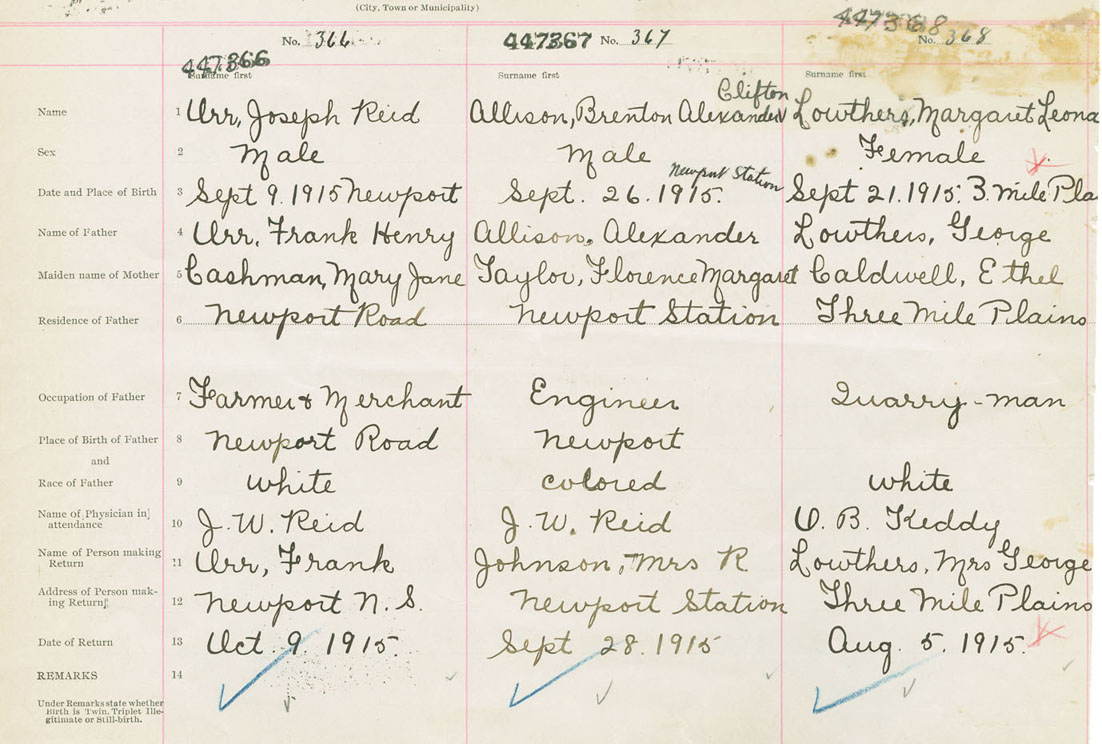 (City, Town or Municipality)
No. 366 447367 No. 367 447368 No. 368
447366
Surname first Surname first Surname first
Clifton
Name 1 Urr, Joseph Reid Allison, Brenton Alexander Lowthers, Margaret Leona
Sex 2 Male Male Female x
Newport Station
Date and Place of Birth 3 Sept 9. 1915 Newport Sept. 26. 1915. Sept 21. 1915. 3. Mile Pla
Name of Father 4 Urr, Frank Henry Allison, Alexander Lowthers, George
Maiden name of Mother 5 Cashman, Mary Jane Taylor, Florence Margaret Caldwell, Ethel
Residence of Father 6 Newport Road Newport Station Three Mile Plains
Occupation of Father 7 Farmer & Merchant Engineer Quarry-man
Place of Birth of Father 8 Newport Road Newport
and
Race of Father 9 white colored white
Name of Physician in
attendance 10 J. W. Reid J. W. Reid O. B. Keddy
Name of Person making
Return 11 Urr, Frank Johnson, Mrs R Lowthers, Mrs George
Address of Person mak-
ing Return 12 Newport N. S. Newport Station Three Mile Plains
Date of Return 13 Oct 9 1915. Sept 28. 1915 Aug. 5. 1915. x
REMARKS 14
Under Remarks state whether
Birth is Twin. Triplet Ille-
gitimate or Still-birth.